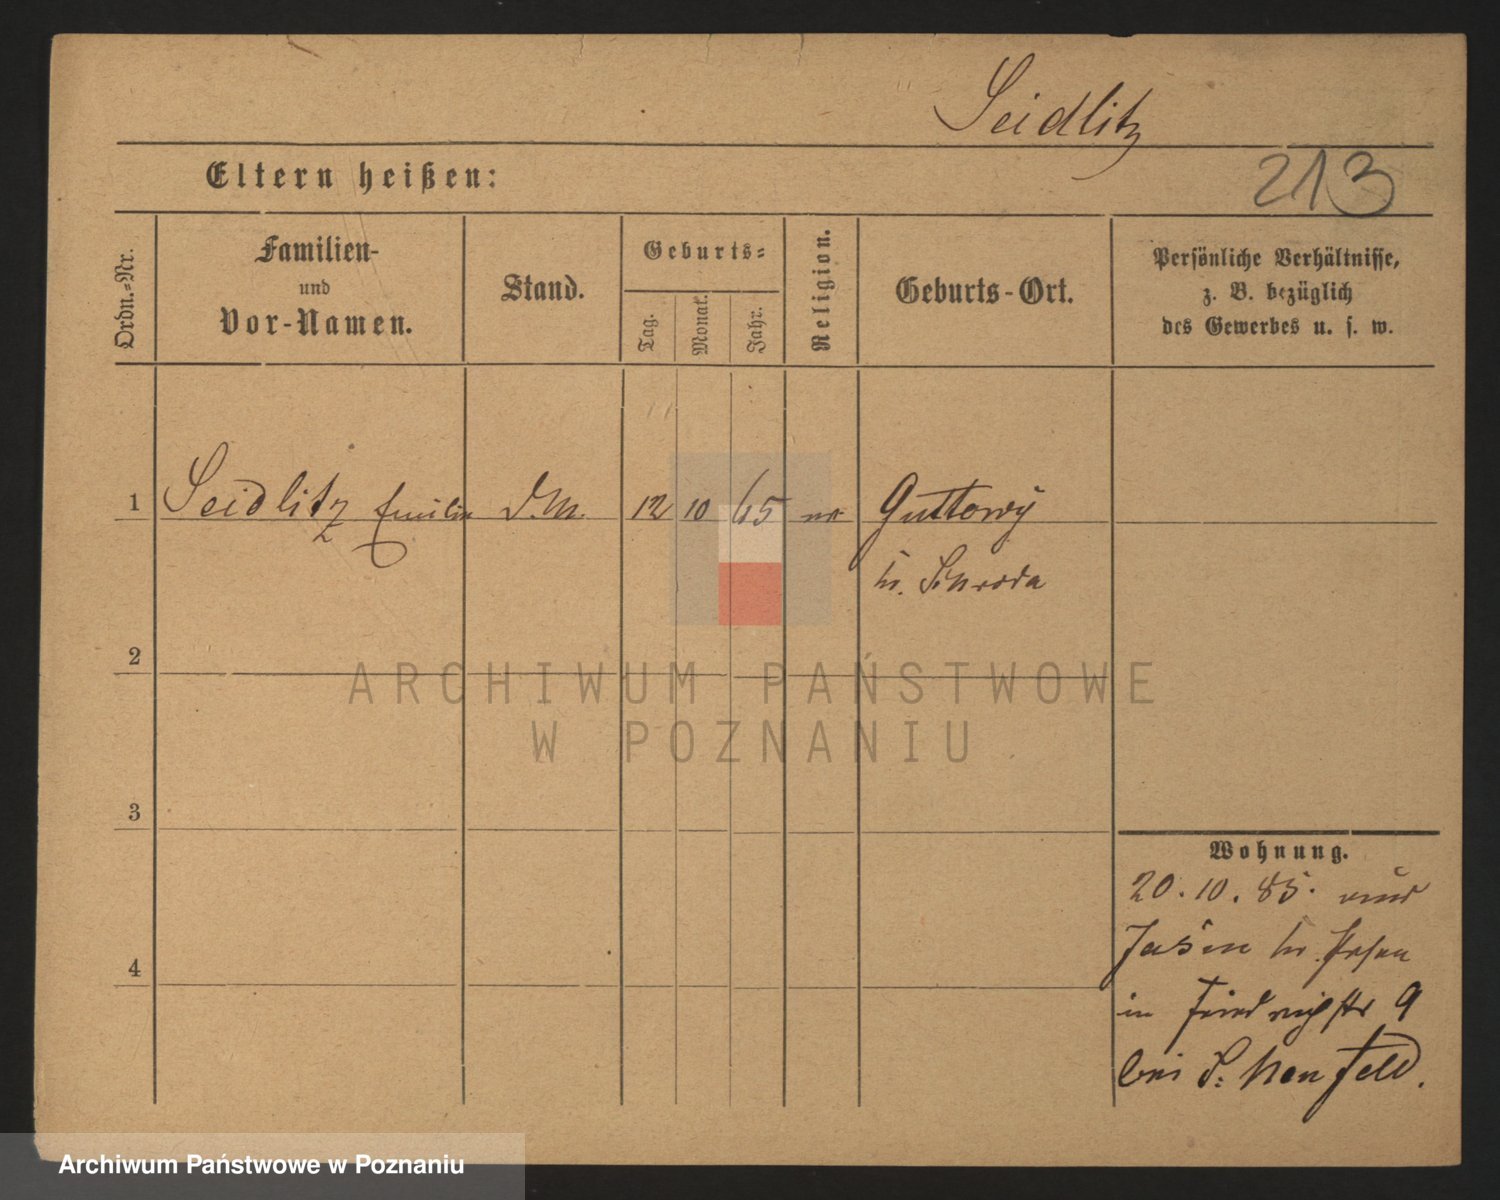 Seidlitz
Eltern heißen:
213
Ordn.=Nr.
Familien-
und
Vor-Namen.
Stand.
Geburts=
Tag.
Monat.
Jahr.
Religion.
Geburts-Ort.
Persönliche Verhältnisse,
z. B. bezüglich
des Gewerbes u. s. w.
1 Seidlitz Emilie D.M. 12 10 65 Guttowy
Kr. Schroda
2
3
4
ARCHIWUM PAŃSTWOWE
W POZNANIU
Wohnung.
20. 10. 85.
Jasin Kr. Posen
in Friedrichstr 9
bei
Archiwum Państwowe w Poznaniu